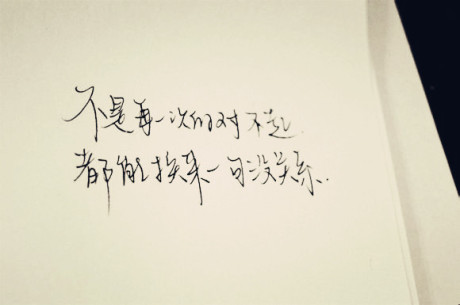 不是每一次的对不起
都能换来一句没关系.